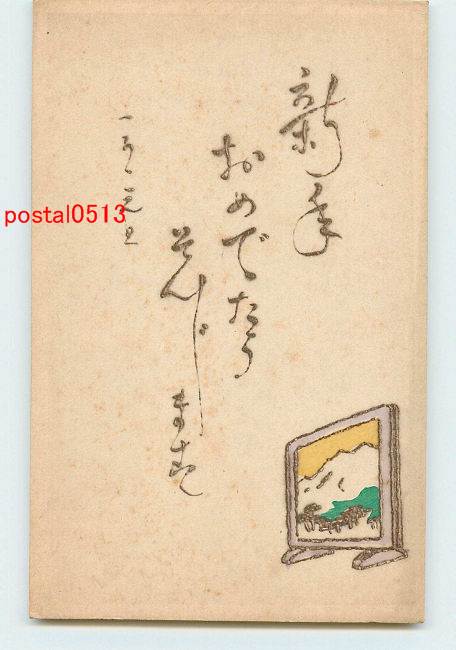 新年
おめでたう
ぞんじ
ます
元旦
postal0513